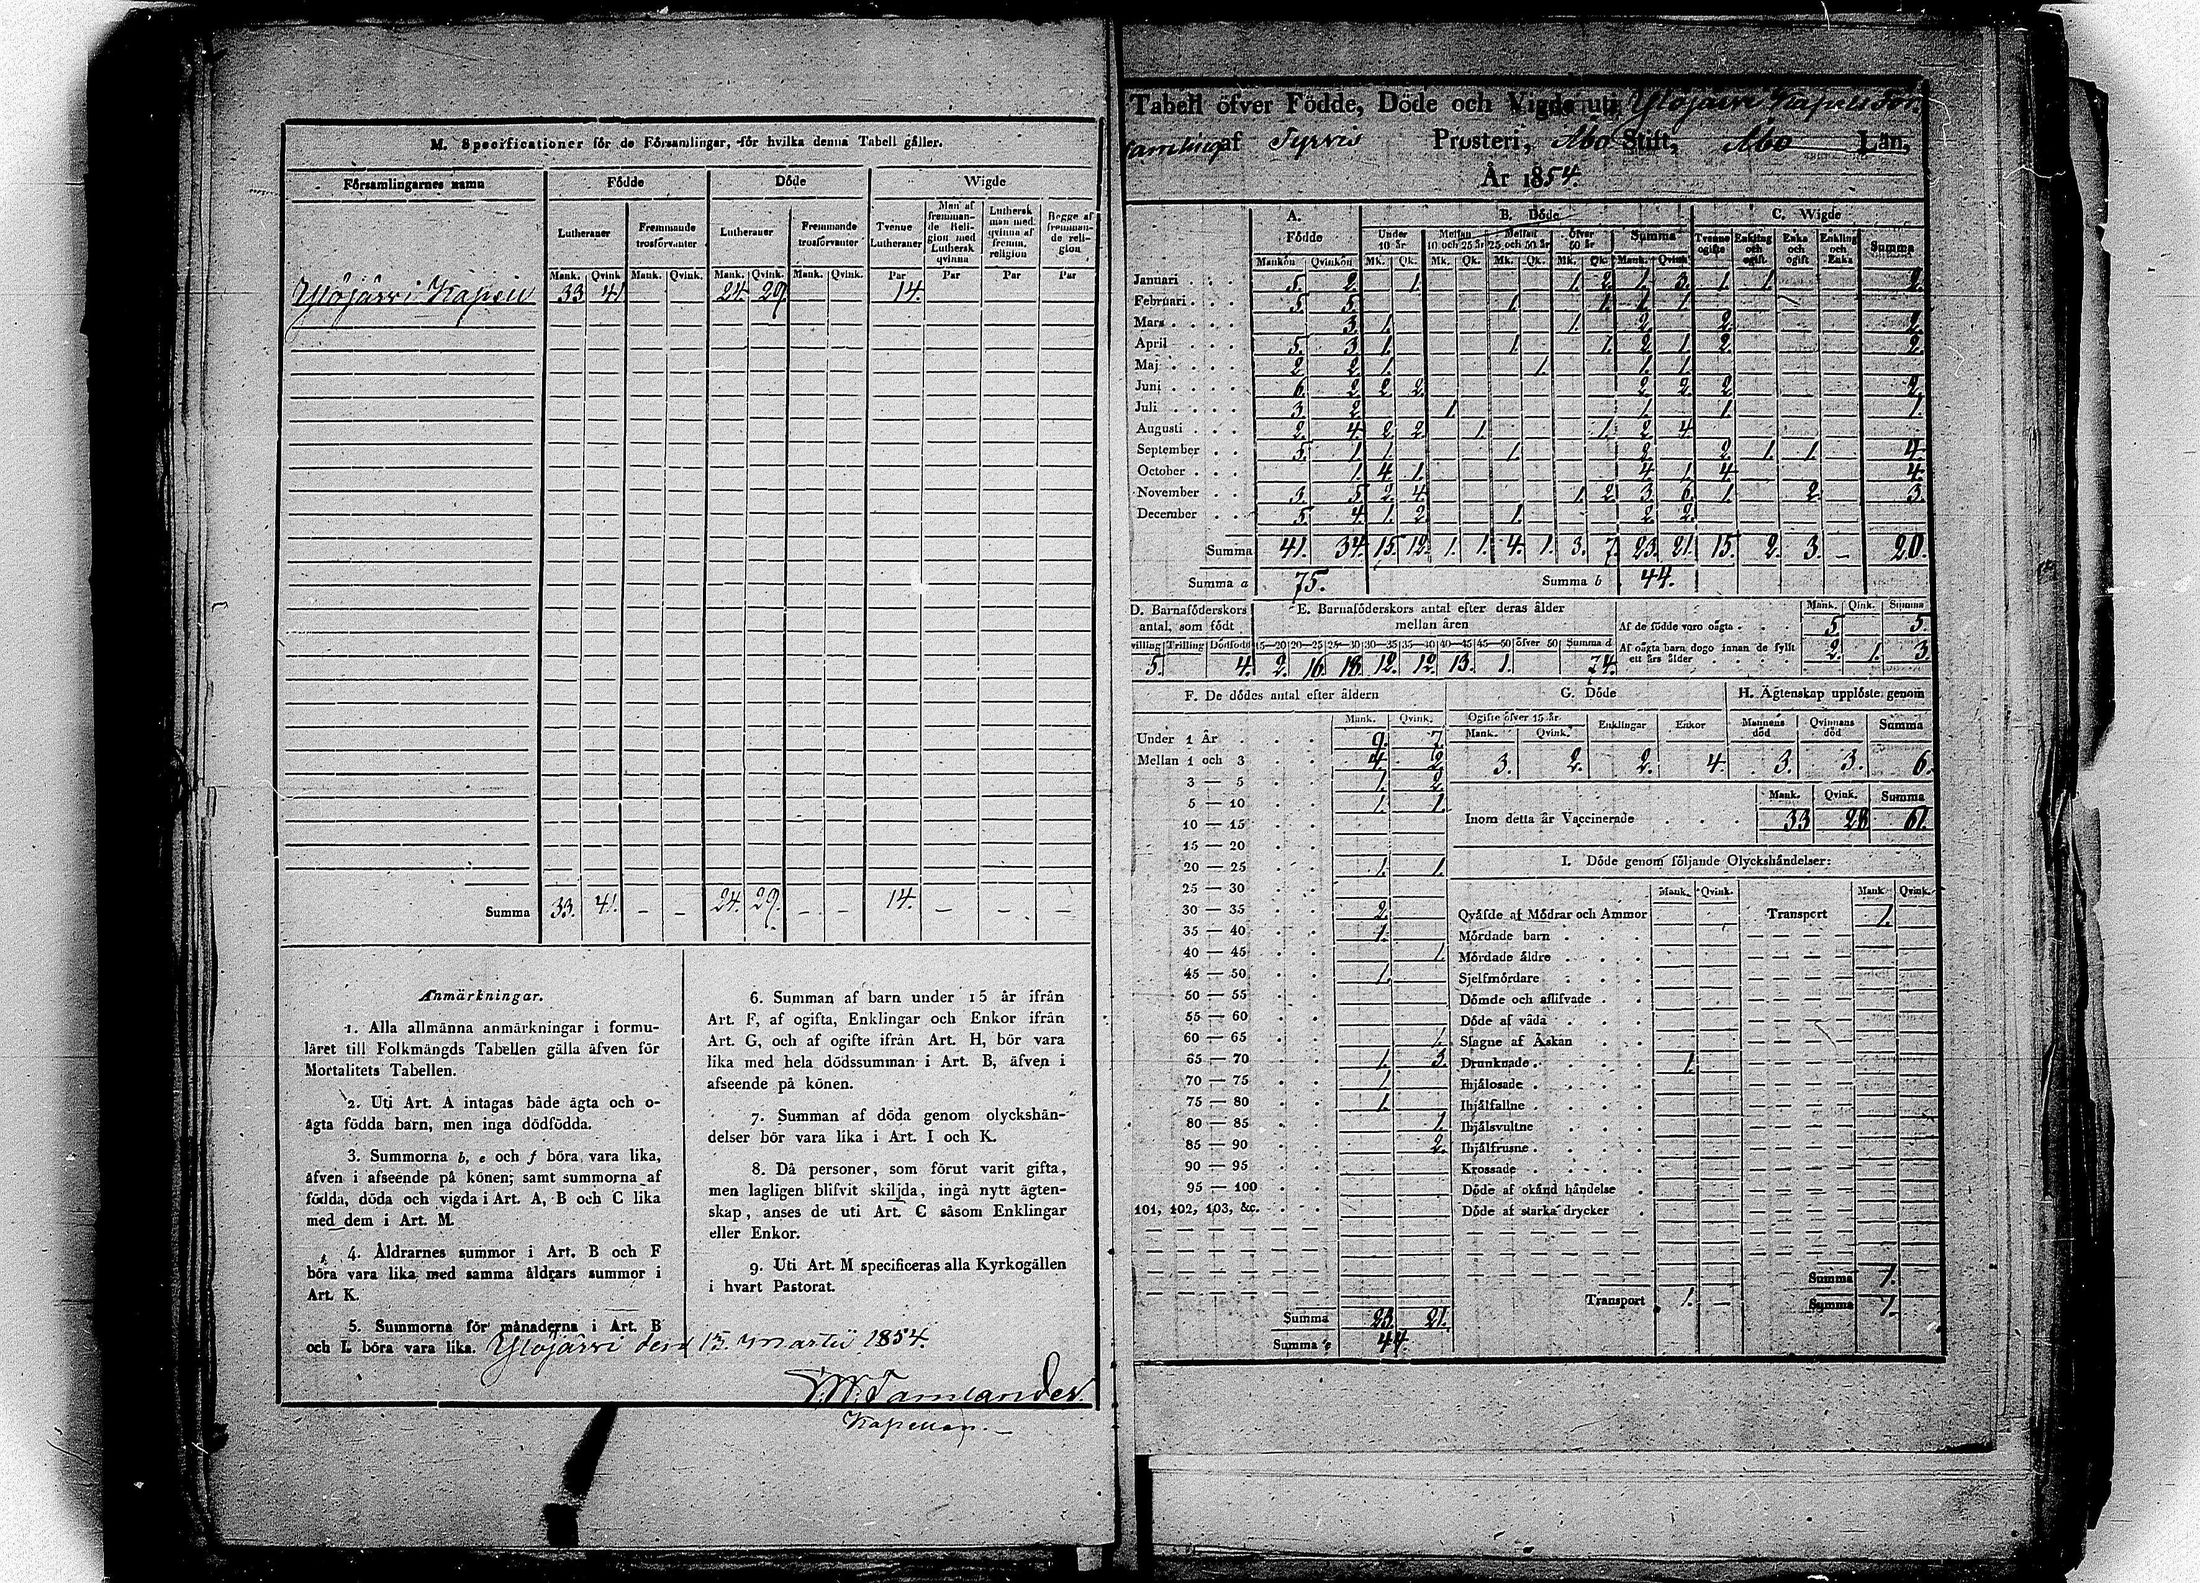 M. Specificationer för de Församlingar, för hvilka denna Tabell gäller.
Församlingarnes namn Födde Döde Wigde
Lutheraner Fremmande trosförvanter Lutheraner Fremmande trosförvanter Tvenne Lutheraner Man af fremmande Religion med Luthersk qvinna Luthersk man med qvinna af fremm. religion Begge af fremmande religion
Mank. Qvink. Mank. Qvink. Mank. Qvink. Mank. Qvink. Par Par Par Par
Ylöjärvi Kapell 33 41 24 29 14.
Summa 33. 41. – – 24. 29. – – 14. – – –
Anmärkningar.
1. Alla allmänna anmärkningar i formu-
läret till Folkmängds Tabellen gälla äfven för
Mortalitets Tabellen.
2. Uti Art. A intagas både ägta och o-
ägta födda barn, men inga dödfödda.
3. Summorna b, e och f böra vara lika,
äfven i afseende på könen; samt summorna af
födda, döda och vigda i Art. A, B och C lika
med dem i Art. M.
4. Åldrarnes summor i Art. B och F
böra vara lika med samma åldrars summor i
Art. K.
5. Summorna för månaderna i Art. B
och L böra vara lika.
6. Summan af barn under 15 år ifrån
Art. F, af ogifta, Enklingar och Enkor ifrån
Art. G, och af ogifte ifrån Art. H, bör vara
lika med hela dödssumman i Art. B, äfven i
afseende på könen.
7. Summan af döda genom olyckshän-
delser bör vara lika i Art. I och K.
8. Då personer, som förut varit gifta,
men lagligen blifvit skiljda, ingå nytt ägten-
skap, anses de uti Art. C såsom Enklingar
eller Enkor.
9. Uti Art. M specificeras alla Kyrkogällen
i hvart Pastorat.
Ylöjärvi den 15 Martii 1854.
Tamlander
Kapellan.
Tabell öfver Födde, Döde och Vigde uti Ylöjärvi Kapells För-
samling af Tyrvis Prosteri, Åbo Stift, Åbo Län,
År 1854.
A. Födde B. Döde C. Wigde
Under 10 år Mellan 10 och 25 år Mellan 25 och 50 år Öfver 50 år Summa Tvenne ogifte Enkling och ogift Enka och ogift Enkling och Enka Summa
Mankön Qvinkön Mk. Qk. Mk. Qk. Mk. Qk. Mk. Qk. Mank. Qvink.
Januari 5. 2. 1. 1. 2. 1. 3. 1. 1. 2.
Februari 5. 5. 1. 1. 1. 1.
Mars 3. 1. 1. 2. 2. 2.
April 5. 3. 1. 1. 1. 2. 1. 2. 2.
Maj 2. 2. 1. 1. 1. 1.
Juni 6. 2. 2. 2. 2. 2. 2. 2.
Juli 3. 2. 1. 1. 1. 1.
Augusti 2. 4. 2. 2. 1. 1. 2. 4.
September 5. 1. 1. 1. 2. 2. 1. 1. 4.
October 1. 4. 1. 4. 1. 4. 4.
November 3. 5. 2. 4. 1. 2. 3. 6. 1. 2. 3.
December 5. 4. 1. 2. 1. 2. 2.
Summa 41. 34. 15. 12. 1. 1. 4. 1. 3. 7. 23. 21. 15. 2. 3. – 20.
Summa a 75. Summa b 44.
D. Barnaföderskors antal, som födt
villing Trilling Dödfödd
5. 4.
E. Barnaföderskors antal efter deras ålder mellan åren
15—20 20—25 25—30 30—35 35—40 40—45 45—50 öfver 50 Summa d
2. 16. 18. 12. 12. 13. 1. 74.
Mank. Qink. Summa
Af de födde voro oägta 5. 5.
Af oägta barn dogo innan de fyllt ett års ålder 2. 1. 3.
F. De dödes antal efter åldern
Mank. Qvink.
Under 1 År 9. 7.
Mellan 1 och 3 4. 2.
3 — 5 1. 2.
5 — 10 1. 1.
10 — 15
15 — 20
20 — 25 1. 1.
25 — 30
30 — 35 2.
35 — 40 1.
40 — 45 1.
45 — 50 1.
50 — 55
55 — 60
60 — 65 1.
65 — 70 1. 3.
70 — 75 1.
75 — 80 1.
80 — 85 1.
85 — 90 2.
90 — 95
95 — 100
101, 102, 103, &c.
Summa 23. 21.
Summa e 44.
G. Döde
Ogifte öfver 15 år Enklingar Enkor
Mank. Qvink.
3. 2. 2. 4.
H. Ägtenskap upplöste genom
Mannens död Qvinnans död Summa
3. 3. 6.
Mank. Qvink. Summa
Inom detta år Vaccinerade 33 28 61.
I. Döde genom följande Olyckshändelser:
Mank. Qvink. Mank. Qvink.
Qväfde af Mödrar och Ammor Transport 1.
Mördade barn
Mördade äldre
Sjelfmördare
Dömde och aflifvade
Döde af våda
Slagne af Åskan
Drunknade 1.
Ihjälosade
Ihjälfallne
Ihjälsvultne
Ihjälfrusne
Krossade
Döde af okänd händelse
Döde af starka drycker
Summa 1.
Transport 1. – Summa 1.